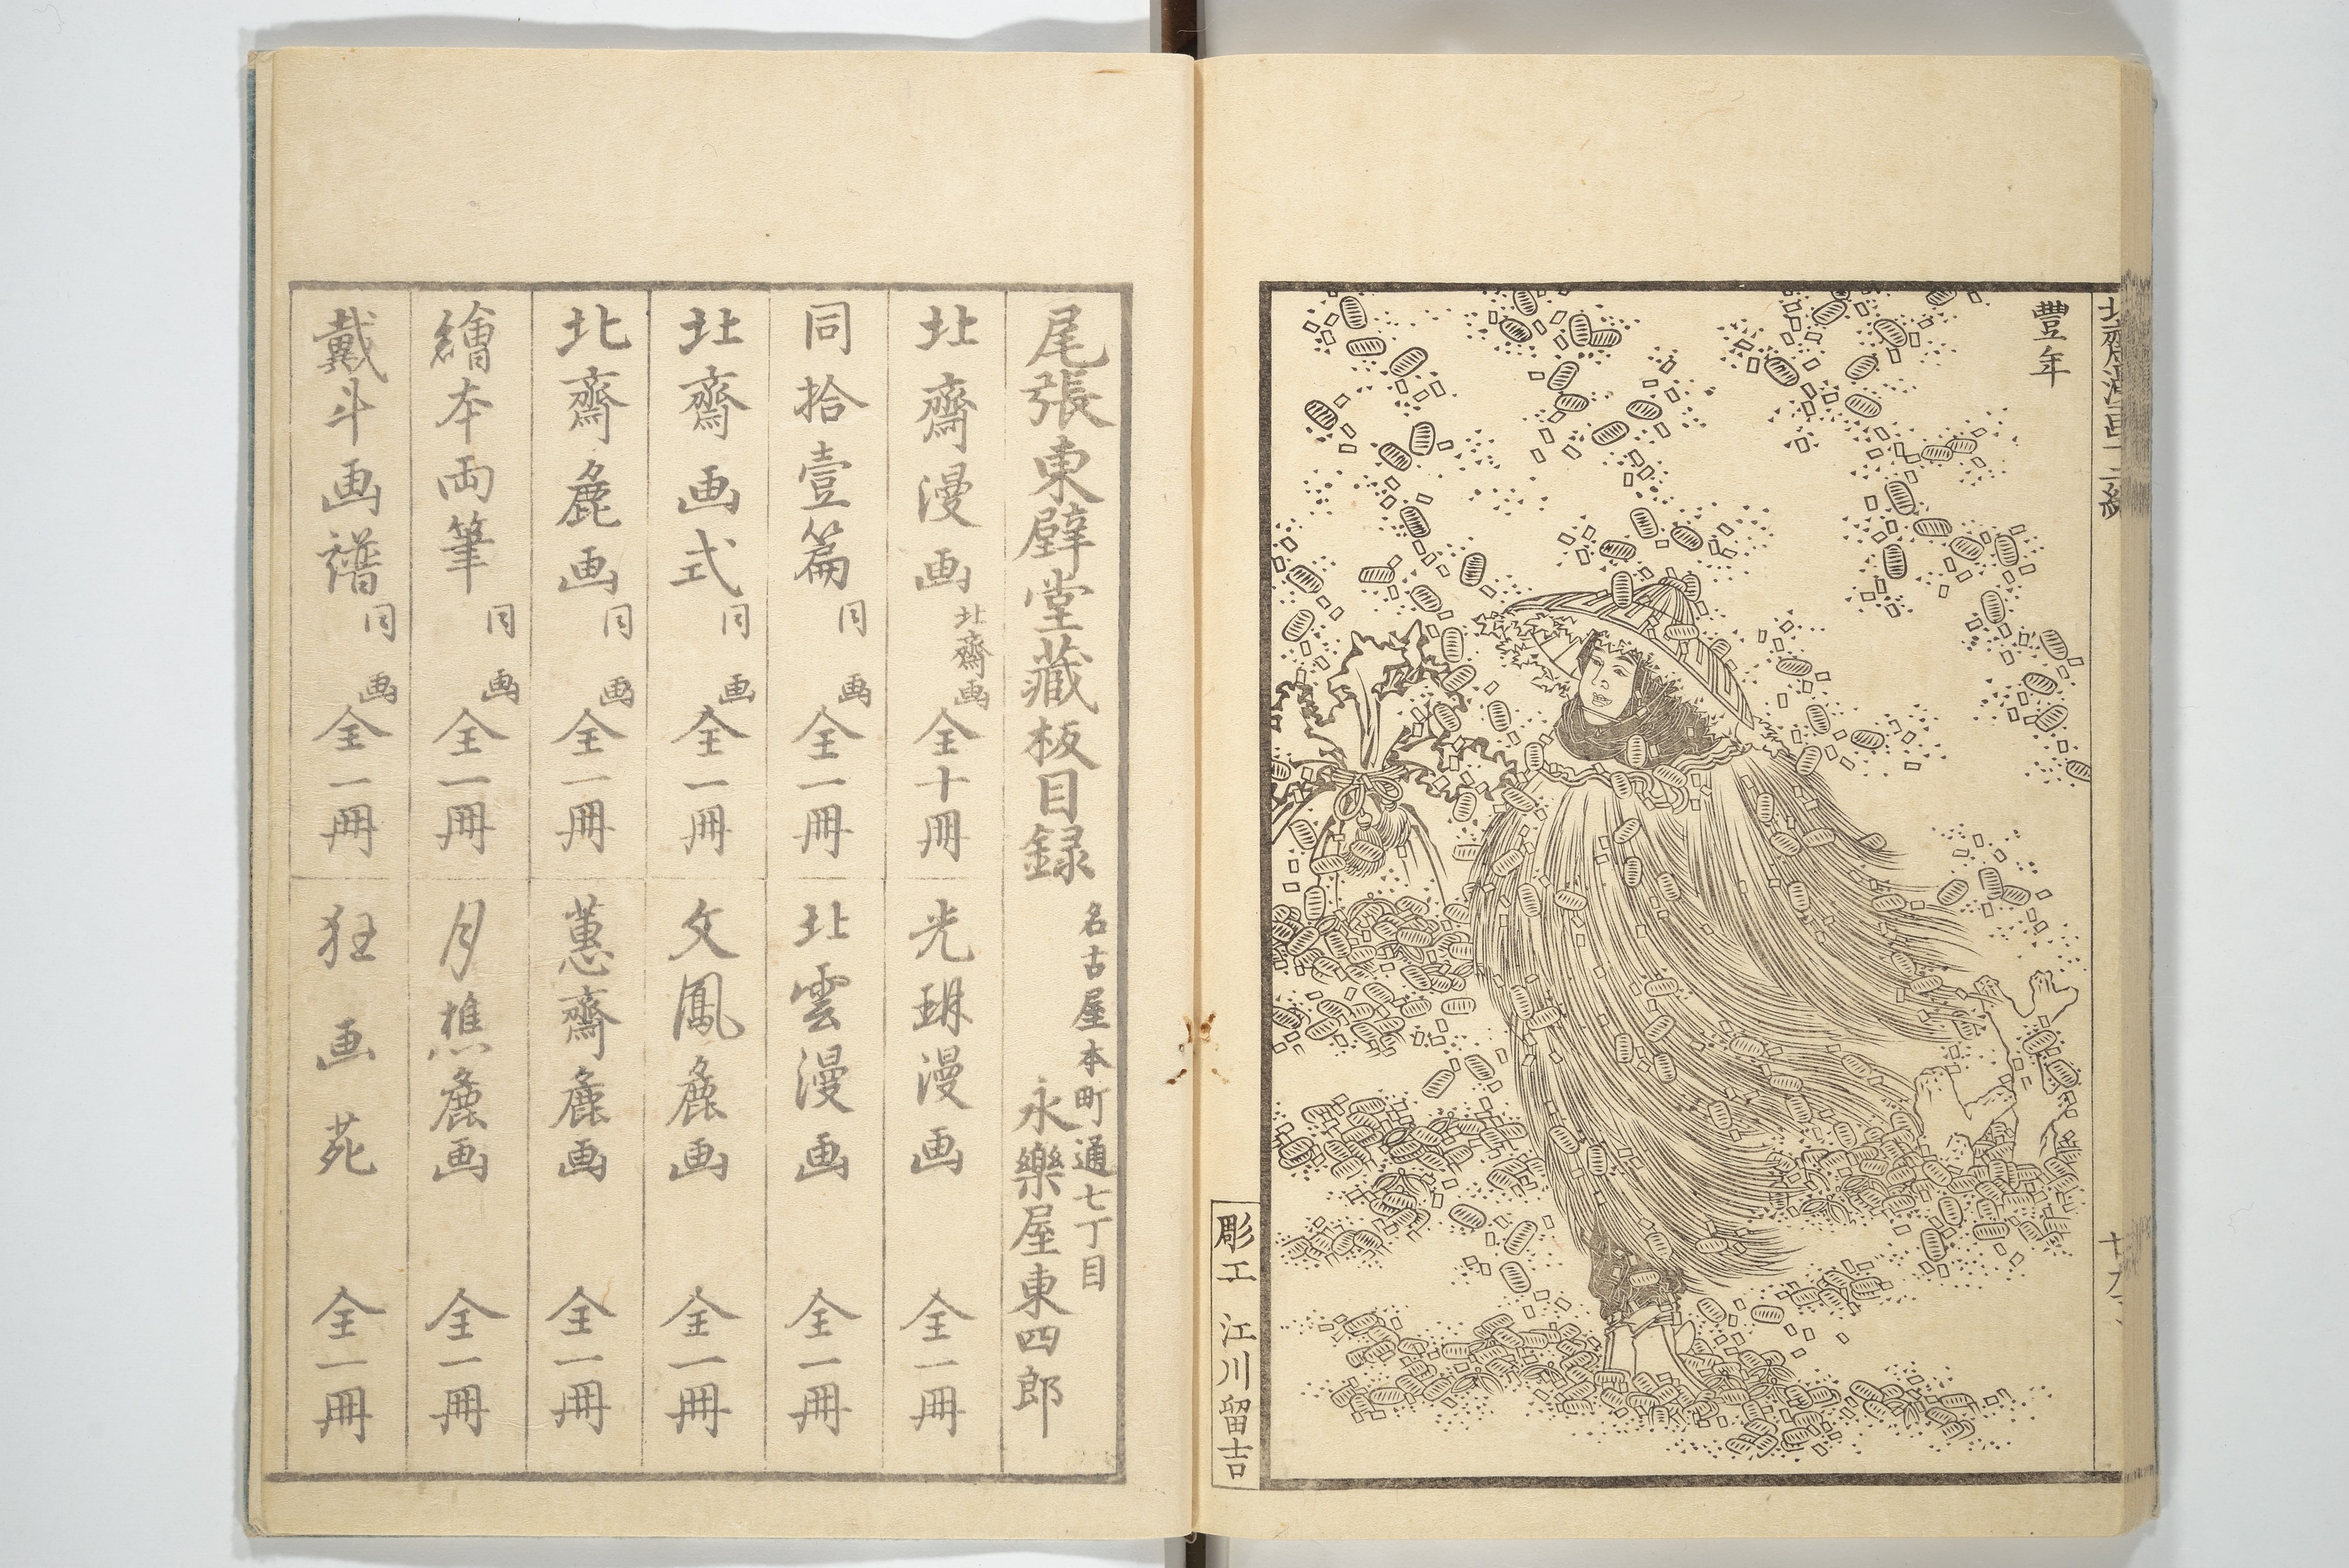 豐年
彫工 江川留吉
尾張東壁堂藏板目録 名古屋本町通七丁目 永樂屋東四郎
北齋漫画 北齋画 全十冊
光琳漫画 全一冊
同拾壹篇 同画 全一冊
北雲漫画 全一冊
北齋画式 同画 全一冊
文鳳麁画 全一冊
北齋麁画 同画 全一冊
蕙齋麁画 全一冊
繪本両筆 同画 全一冊
月樵麁画 全一冊
戴斗画譜 同画 全一冊
狂画苑 全一冊